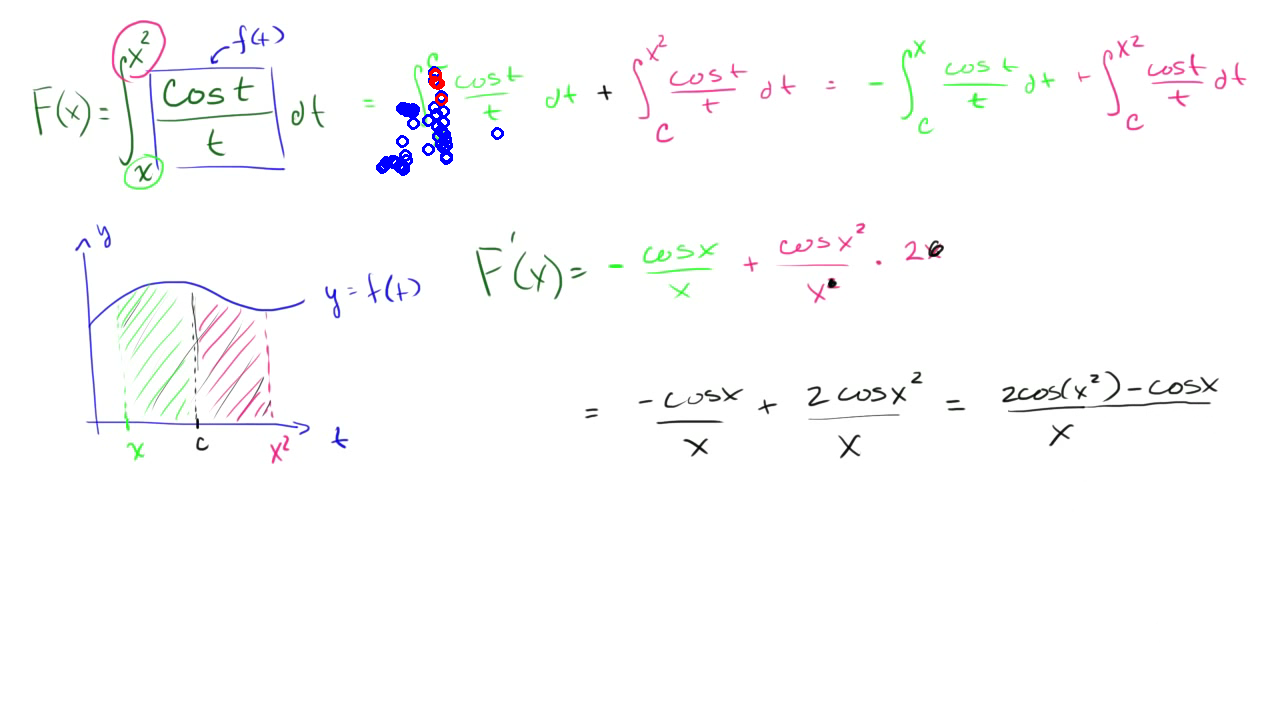 F(x) = ∫_x^{x²} cos t / t dt = ∫^c cos t / t dt + ∫_c^{x²} cos t / t dt = - ∫_c^x cos t / t dt + ∫_c^{x²} cos t / t dt
f(t)
y
y = f(t)
x c x² t
F'(x) = - cos x / x + cos x² / x · 2
= -cos x / x + 2 cos x² / x = 2cos(x²) - cos x / x